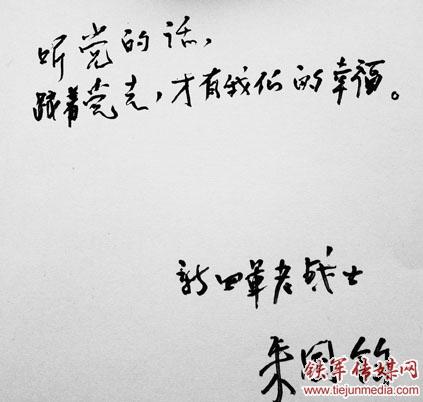 听党的话，
跟着党走，才有我们的幸福。
新四军老战士
朱国
铁军传媒网
www.tiejunmedia.com